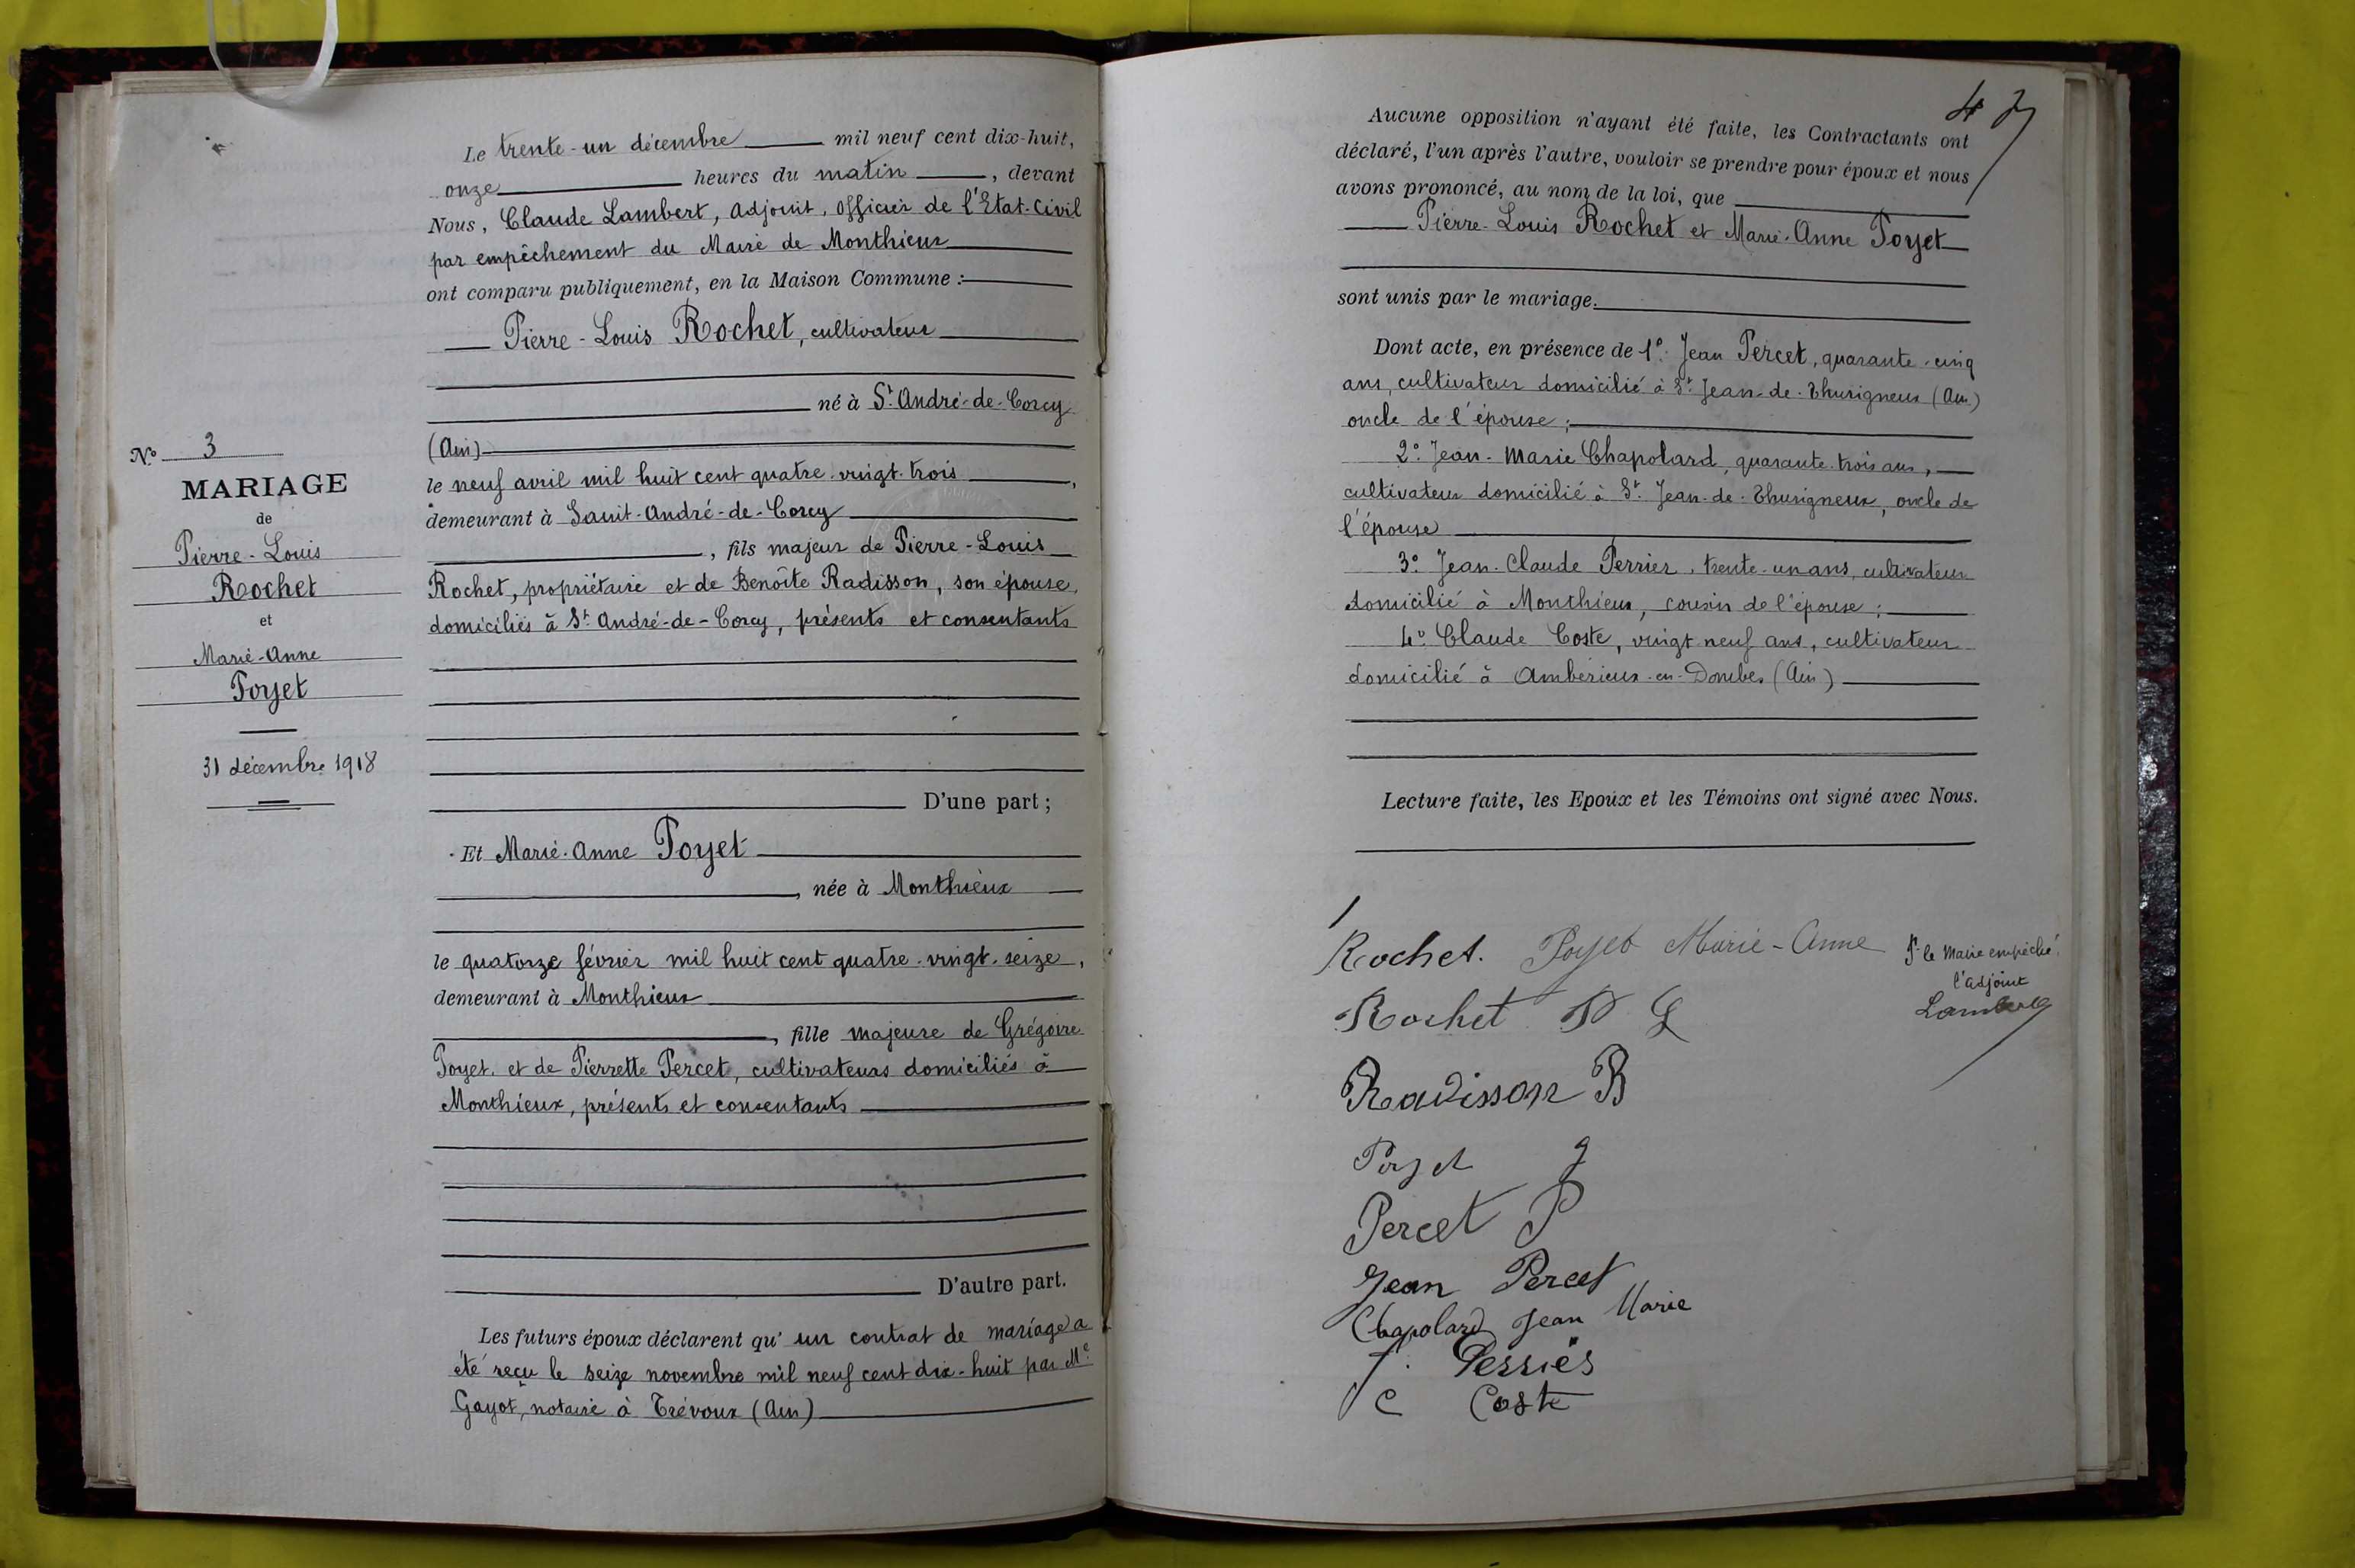 N° 3
MARIAGE
de
Pierre-Louis
Rochet
et
Marie-Anne
Poyet
31 décembre 1918
Le trente-un décembre mil neuf cent dix-huit,
onze heures du matin, devant
Nous, Claude Lambert, Adjoint, Officier de l'Etat-Civil
par empêchement du Maire de Monthieux
ont comparu publiquement, en la Maison Commune :
Pierre-Louis Rochet, cultivateur
né à St. André-de-Corcy
(Ain)
le neuf avril mil huit cent quatre-vingt-trois,
demeurant à Saint-André-de-Corcy
, fils majeur de Pierre-Louis
Rochet, propriétaire et de Benoîte Radisson, son épouse,
domiciliés à St. André-de-Corcy, présents et consentants
D'une part ;
Et Marie-Anne Poyet
, née à Monthieux
le quatorze février mil huit cent quatre-vingt-seize,
demeurant à Monthieux
, fille majeure de Grégoire
Poyet et de Pierrette Percet, cultivateurs domiciliés à
Monthieux, présents et consentants
D'autre part.
Les futurs époux déclarent qu'un contrat de mariage a
été reçu le seize novembre mil neuf cent dix-huit par Me
Gayot, notaire à Trévoux (Ain)
Aucune opposition n'ayant été faite, les Contractants ont
déclaré, l'un après l'autre, vouloir se prendre pour époux et nous
avons prononcé, au nom de la loi, que
Pierre-Louis Rochet et Marie-Anne Poyet
sont unis par le mariage.
Dont acte, en présence de 1° Jean Percet, quarante-cinq
ans, cultivateur domicilié à St. Jean-de-Thurigneux (Ain)
oncle de l'épouse ;
2° Jean-Marie Chapolard, quarante-trois ans,
cultivateur domicilié à St. Jean-de-Thurigneux, oncle de
l'épouse
3° Jean-Claude Perrier, trente-un ans, cultivateur
domicilié à Monthieux, cousin de l'épouse ;
4° Claude Coste, vingt-neuf ans, cultivateur
domicilié à Ambérieux-en-Dombes (Ain)
Lecture faite, les Epoux et les Témoins ont signé avec Nous.
Rochet. Poyet Marie-Anne
Pr le Maire empêché
l'adjoint
Lambert
Rochet P L
Radisson B
Poyet g
Percet P
Jean Percet
Chapolard Jean Marie
J. Perrier
C Coste